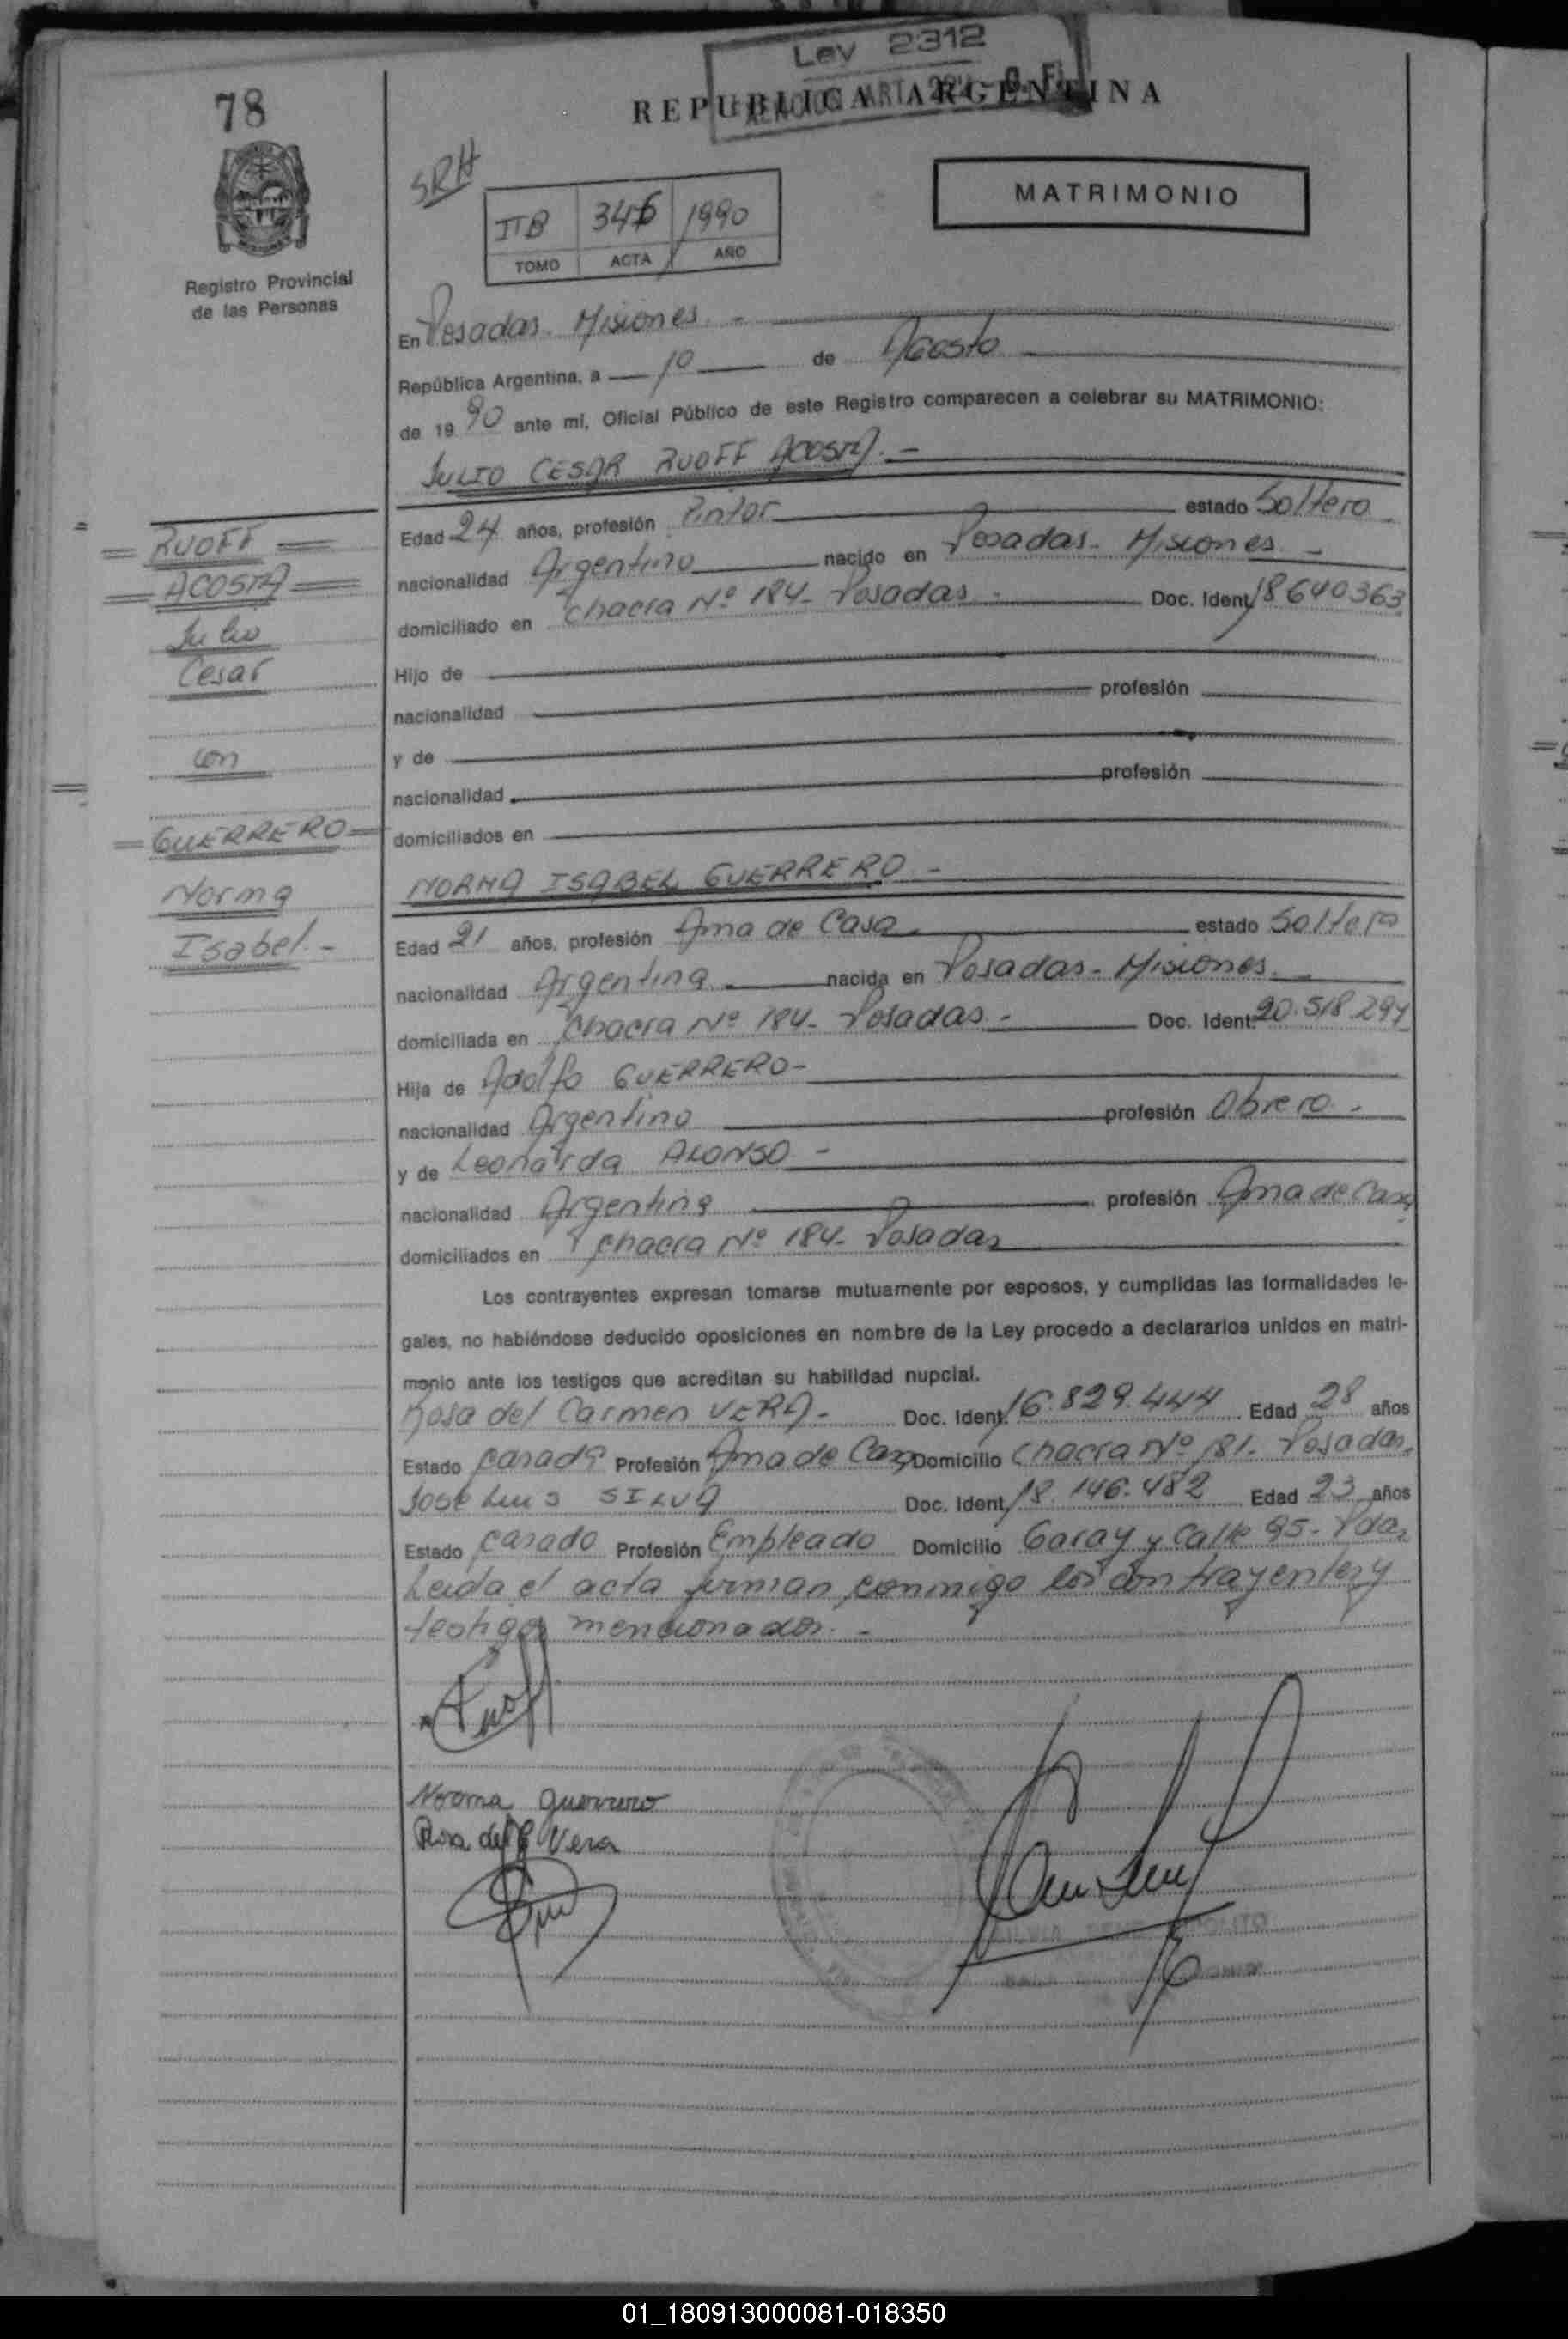 78
Ley 2312
REPUBLICA ARGENTINA
SRH
MATRIMONIO
IIB 346 1990
TOMO ACTA AÑO
Registro Provincial
de las Personas
En Posadas - Misiones. -
República Argentina, a 10 de Agosto
de 1990 ante mi, Oficial Público de este Registro comparecen a celebrar su MATRIMONIO:
JULIO CESAR RUOFF ACOSTA. -
Edad 24 años, profesión Pintor estado Soltero
nacionalidad Argentino nacido en Posadas - Misiones -
domiciliado en Chacra Nº 184 - Posadas - Doc. Ident. 18640363
Hijo de
nacionalidad profesión
y de
nacionalidad profesión
domiciliados en
RUOFF
ACOSTA
Julio
Cesar
con
GUERRERO
Norma
Isabel. -
NORMA ISABEL GUERRERO -
Edad 21 años, profesión Ama de Casa estado Soltera
nacionalidad Argentina nacida en Posadas - Misiones.
domiciliada en Chacra Nº 184 - Posadas - Doc. Ident. 20.518.294
Hija de Adolfo GUERRERO -
nacionalidad Argentino profesión Obrero -
y de Leonarda ALONSO -
nacionalidad Argentina profesión Ama de Casa
domiciliados en Chacra Nº 184 - Posadas
Los contrayentes expresan tomarse mutuamente por esposos, y cumplidas las formalidades le-
gales, no habiéndose deducido oposiciones en nombre de la Ley procedo a declararlos unidos en matri-
monio ante los testigos que acreditan su habilidad nupcial.
Rosa del Carmen VERA - Doc. Ident. 16.829.444 Edad 28 años
Estado Casada Profesión Ama de Casa Domicilio Chacra Nº 181 - Posadas.
José Luis SILVA Doc. Ident. 18.146.482 Edad 23 años
Estado Casado Profesión Empleado Domicilio Garay y Calle 95 - Pdas.
Leida el acta firman conmigo los contrayentes y
testigos mencionados. -
Ruoff
Norma Guerrero
Rosa del C Vera
01_180913000081-018350